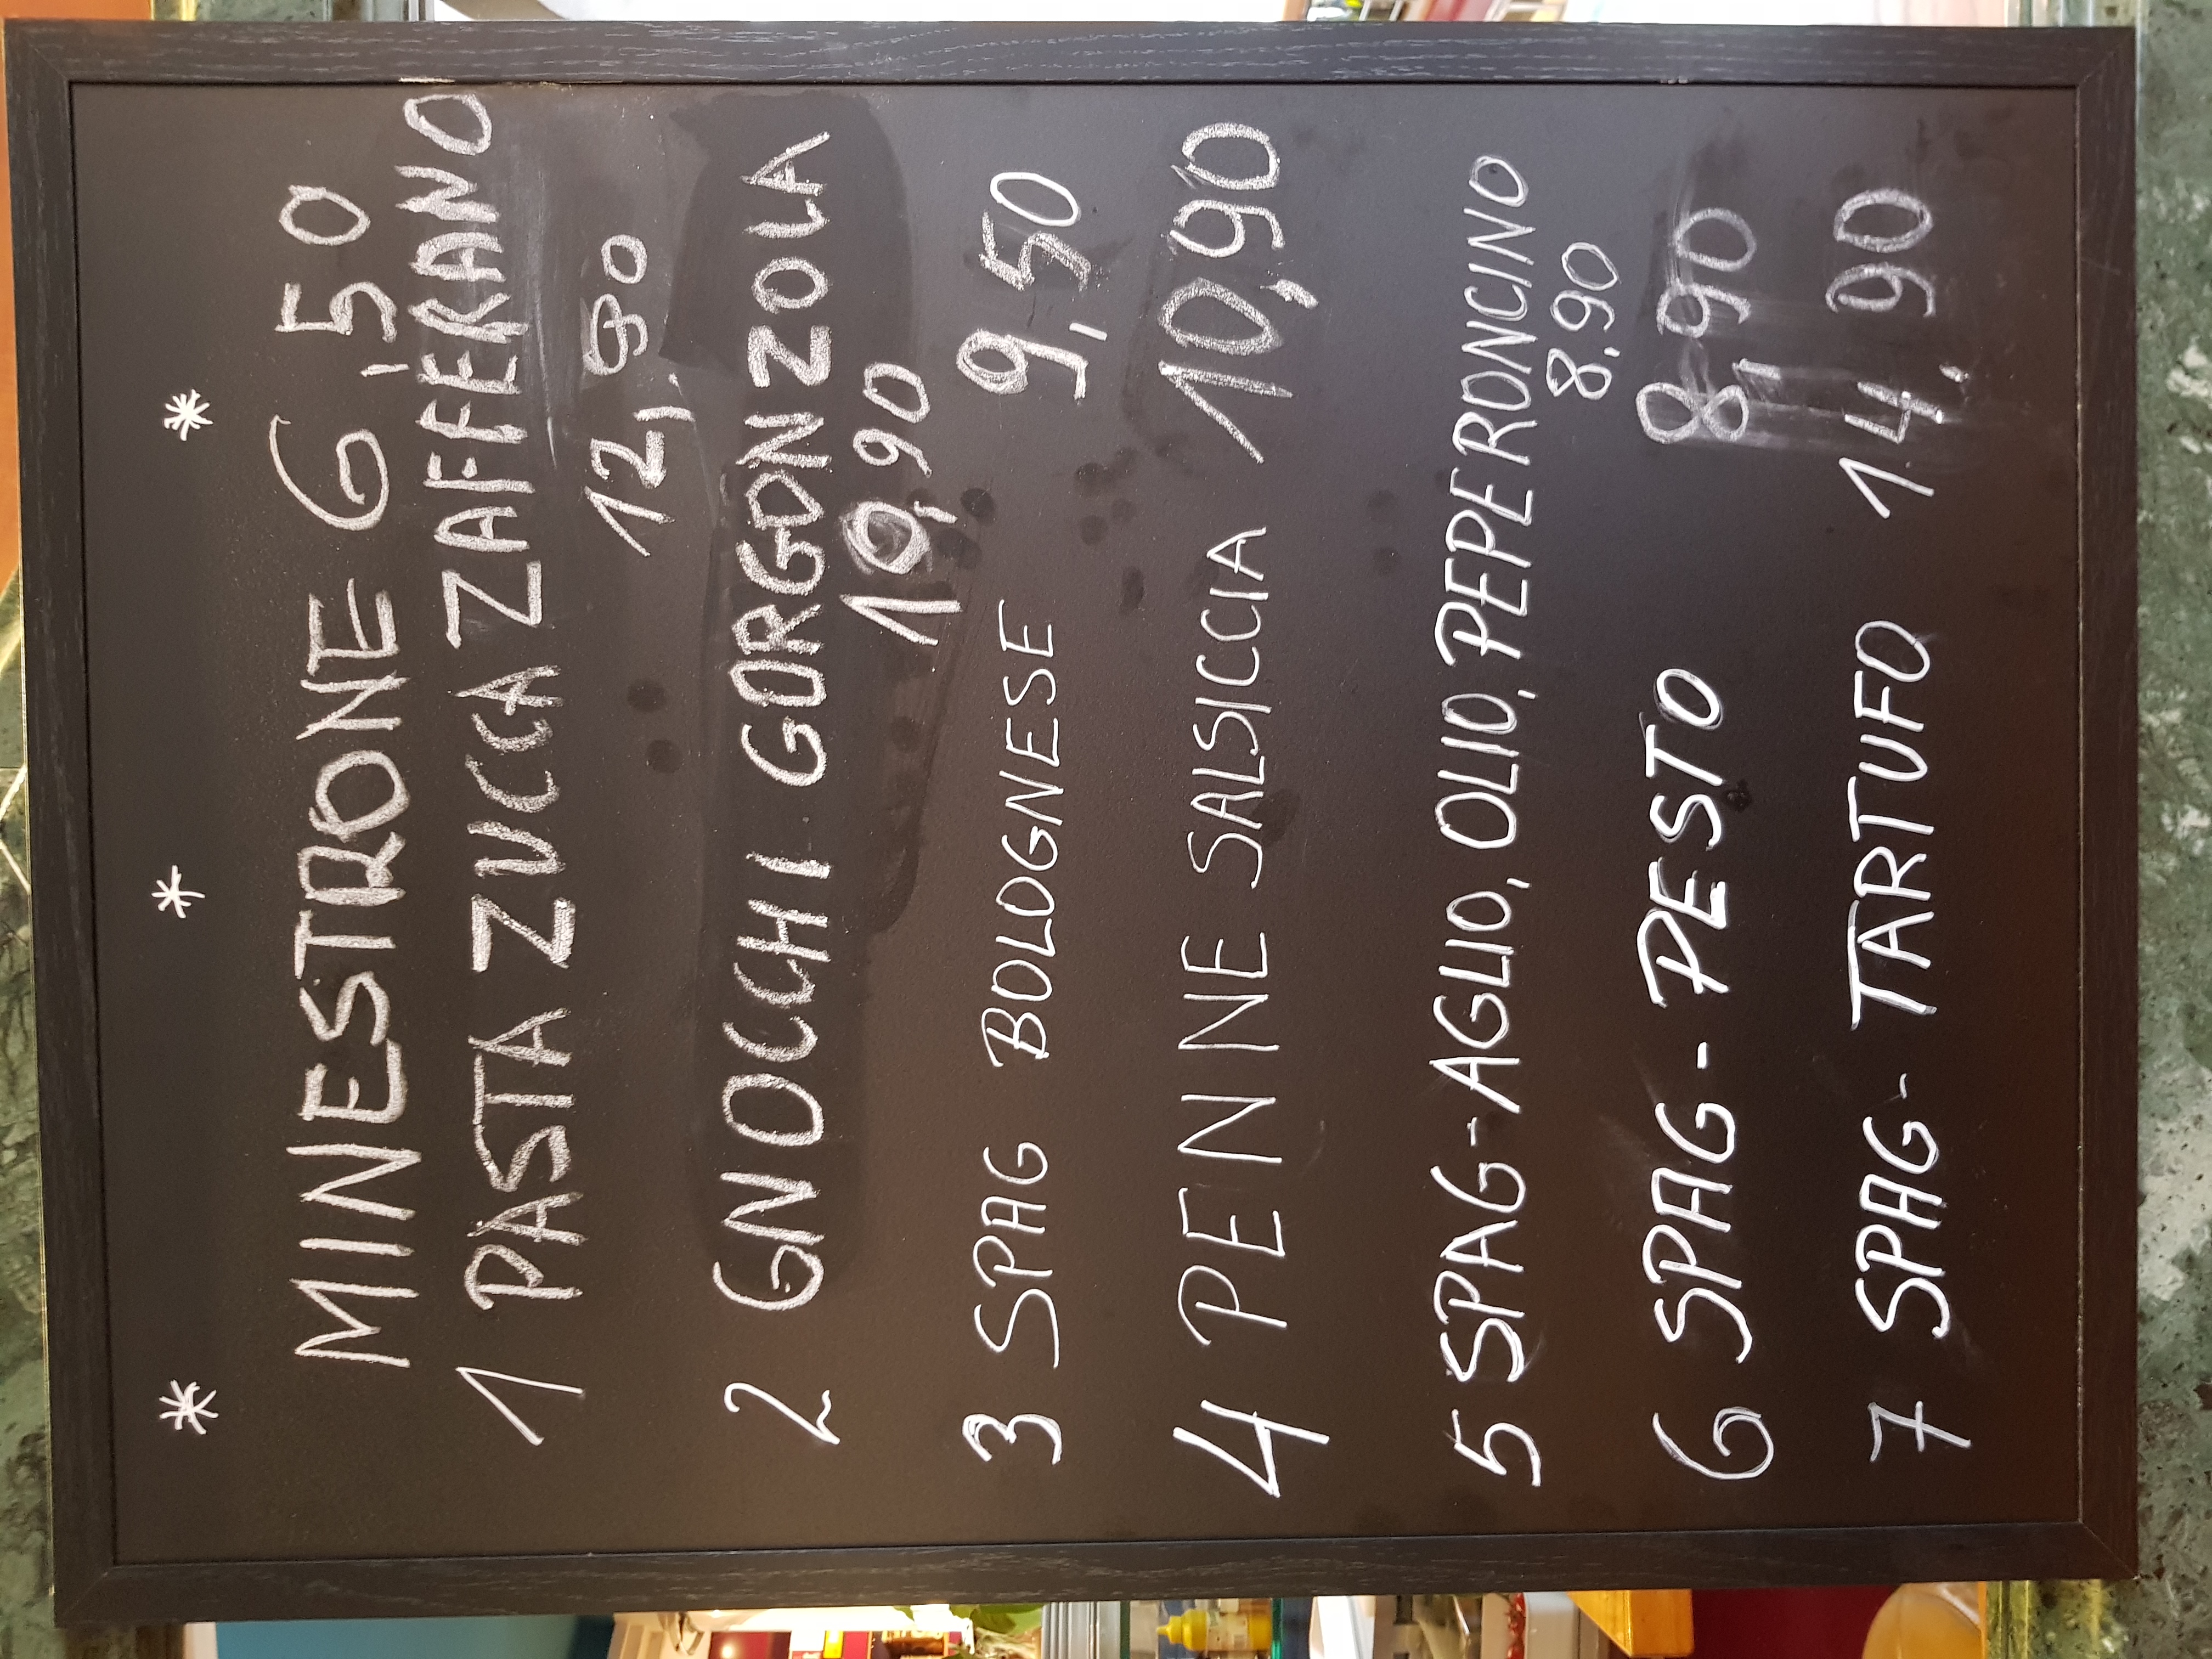 * * *
MINESTRONE 6,50
1 PASTA ZUCCA ZAFFERANO
12,90
2 GNOCCHI GORGONZOLA
10,90
3 SPAG BOLOGNESE 9,50
4 PENNE SALSICCIA 10,90
5 SPAG-AGLIO, OLIO, PEPERONCINO
8,90
6 SPAG - PESTO 8,90
7 SPAG - TARTUFO 14,90